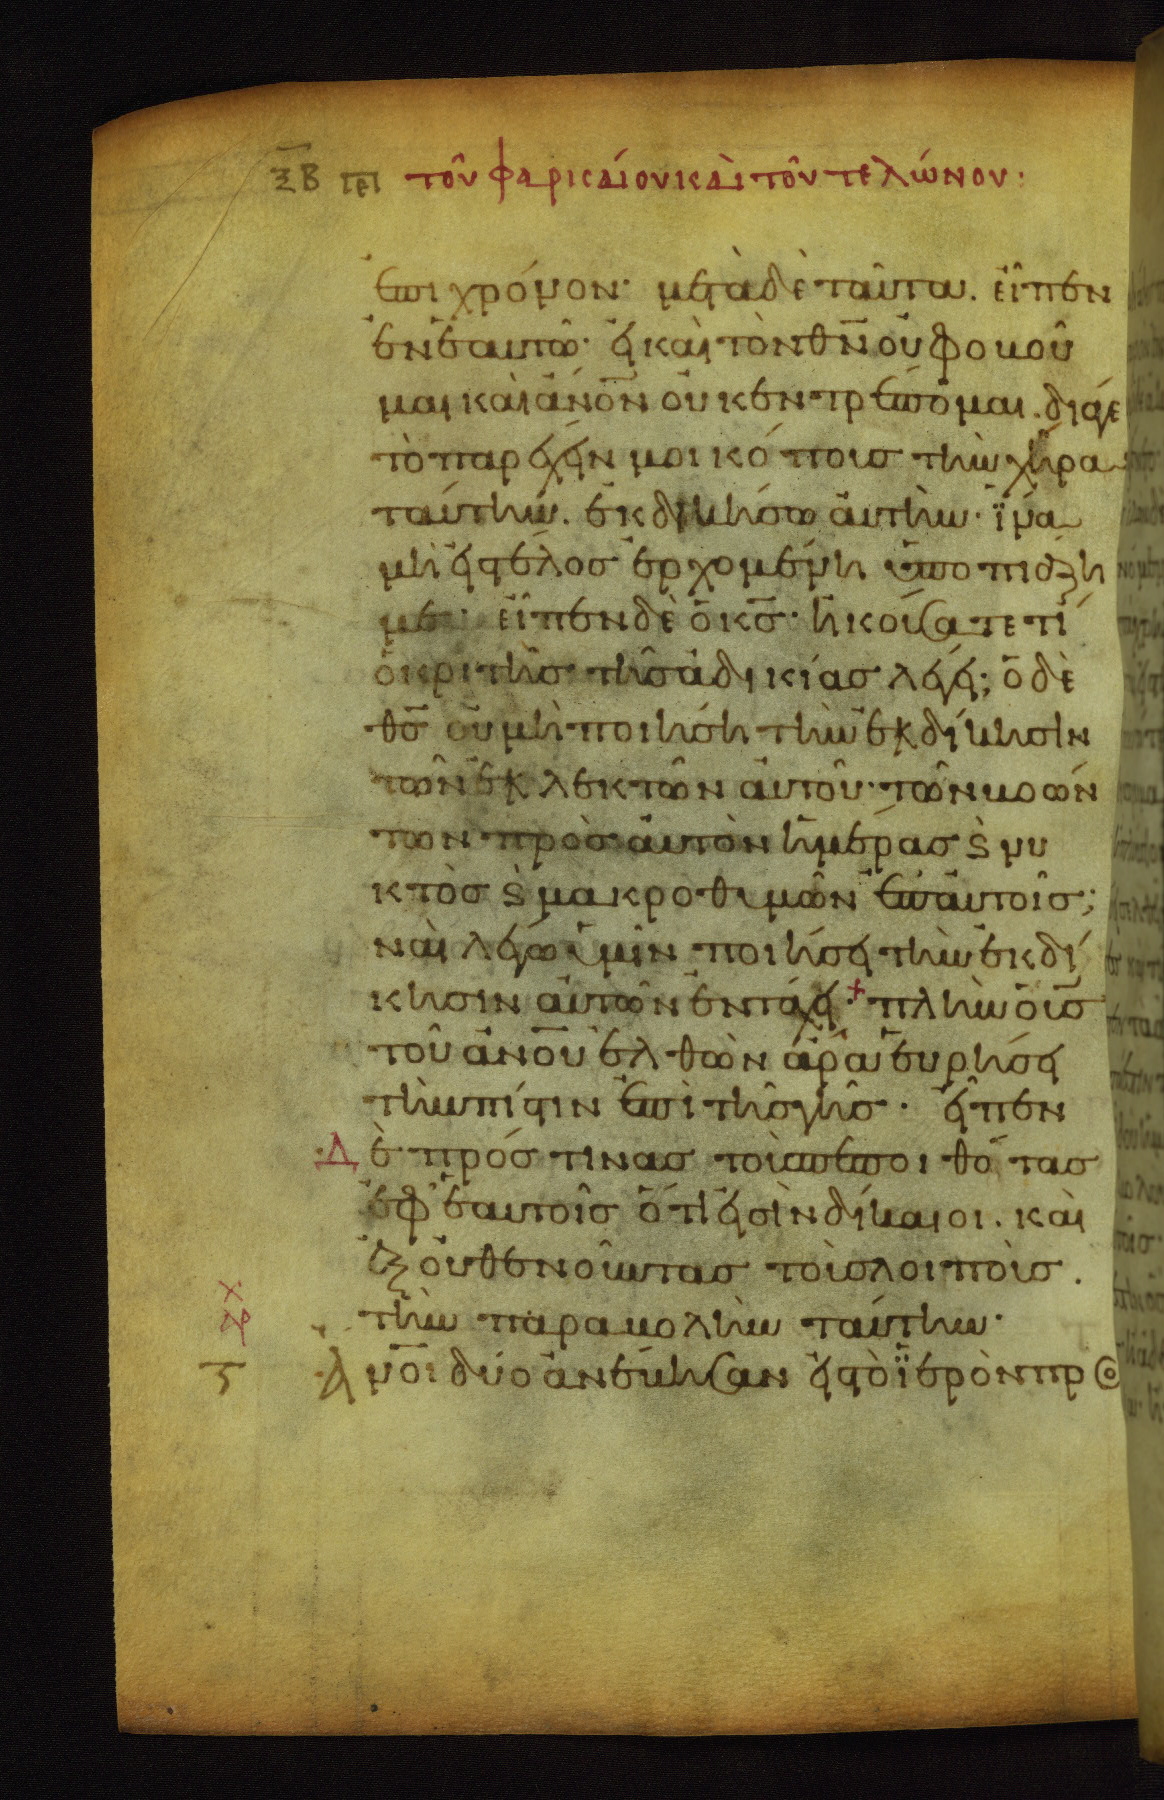 ξ̅Β̅ πε̅ρι τοῦ φαρισαίου καὶ τοῦ τελώνου:
ἐπι χρόνον· μετὰ δὲ ταῦτα. εἶπεν
ἐν ἑαυτῶ· εἰ καὶ τὸν θ̅ν̅ οὐ φοβοῦ
μαι καὶ ἄν̅ο̅ν̅ οὐκ ἐντρέπομαι. διά γε
τὸ παρέχειν μοι κόπους τὴν χήρα
ταύτην. ἐκδικήσω αὐτὴν· ἵνα
μὴ εἰς τέλος ἐρχομένη ὑποπιάζη
με· εἶπεν δὲ ὁ κ̅ς̅· ἠκούσατε τί
ὁ κριτὴς τῆς ἀδικίας λέγει; ὁ δὲ
θ̅ς̅ οὐ μὴ ποιήση τὴν ἐκδίκησιν
τῶν ἐκλεκτῶν αὐτοῦ· τῶν βοών
των πρὸς αὐτὸν ἡμέρας ϗ̀ νυ
κτὸς ϗ̀ μακροθυμῶν ἐπ' αὐτοῖς;
ναὶ λέγω ὑμῖν ποιήσει τὴν ἐκδί
κησιν αὐτῶν ἐν τάχει· + πλὴν ὁ υ̅ς̅
τοῦ ἀν̅ο̅υ̅ ἐλθὼν ἆρα εὑρήσει
τὴν πίστιν ἐπὶ τῆς γῆς· εἶπεν
·Δ δὲ πρός τινας τοὺς πεποιθότας
ἐφ' ἑαυτοῖς ὅτι εἰσὶν δίκαιοι. καὶ
ἐξουθενοῦντας τοὺς λοιποὺς.
τὴν παραβολὴν ταύτην·
ϛ̅ ·Α̅ν̅ο̅ι δύο ἀνέβησαν εἰς τὸ ἱερὸν προ